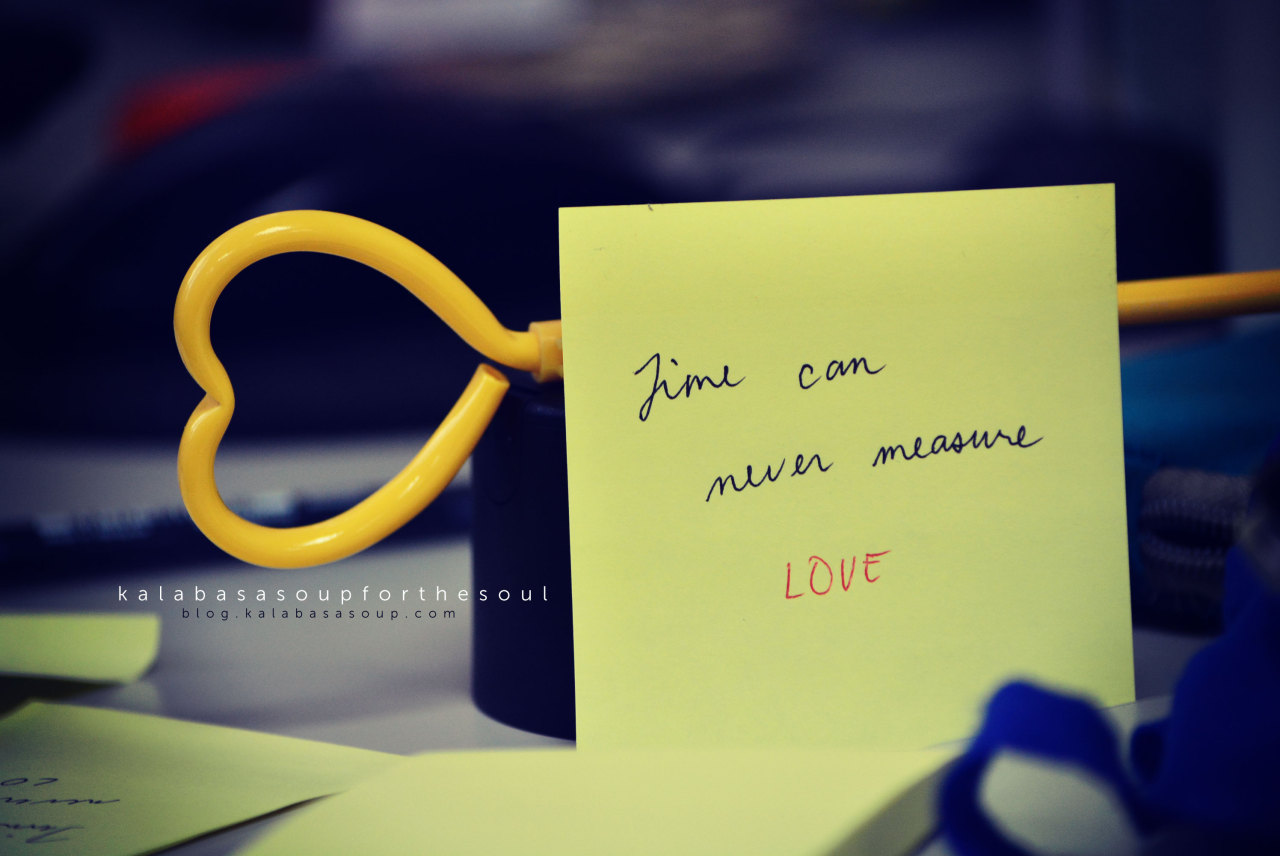 Time can
never measure
LOVE
kalabasasoupforthesoul
blog.kalabasasoup.com